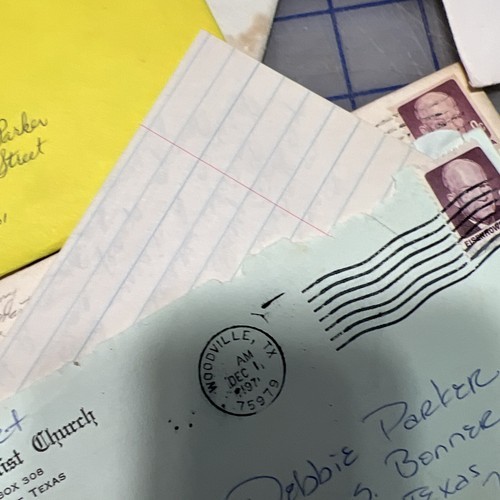 Parker
Street
EISENHOWER
WOODVILLE, TX
AM
DEC 1,
197
75979
ist Church
BOX 308
TEXAS
Debbie Parker
S. Bonner
Texas